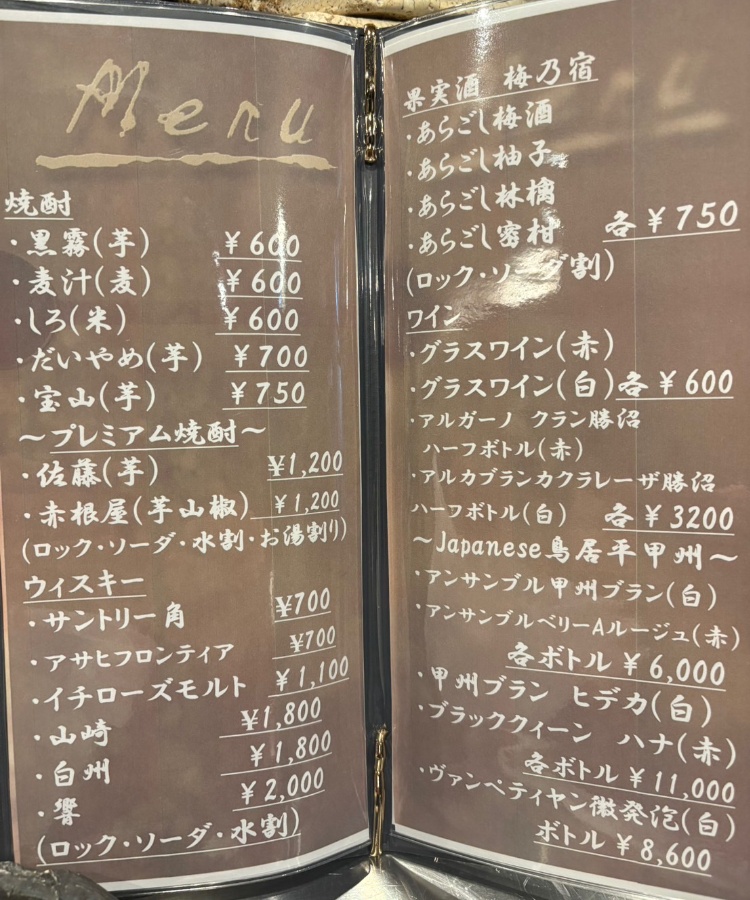 Menu
焼酎
・黒霧(芋) ¥600
・麦汁(麦) ¥600
・しろ(米) ¥600
・だいやめ(芋) ¥700
・宝山(芋) ¥750
～プレミアム焼酎～
・佐藤(芋) ¥1,200
・赤根屋(芋山椒) ¥1,200
(ロック・ソーダ・水割・お湯割り)
ウィスキー
・サントリー角 ¥700
・アサヒフロンティア ¥700
・イチローズモルト ¥1,100
・山崎 ¥1,800
・白州 ¥1,800
・響 ¥2,000
(ロック・ソーダ・水割)
果実酒 梅乃宿
・あらごし梅酒
・あらごし柚子
・あらごし林檎
・あらごし密柑 各¥750
(ロック・ソーダ割)
ワイン
・グラスワイン(赤)
・グラスワイン(白)各¥600
・アルガーノ クラン勝沼
ハーフボトル(赤)
・アルカブランカクラレーザ勝沼
ハーフボトル(白) 各¥3200
～Japanese鳥居平甲州～
・アンサンブル甲州ブラン(白)
・アンサンブルベリーAルージュ(赤)
各ボトル¥6,000
・甲州ブラン ヒデカ(白)
・ブラッククィーン ハナ(赤)
各ボトル¥11,000
・ヴァンペティヤン微発泡(白)
ボトル¥8,600